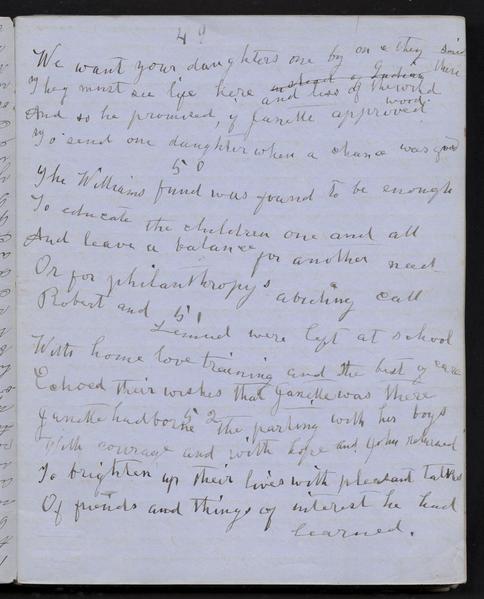 49
We want your daughters one by one they said
They must see life here instead of Indian there
and less of the world
And so he promised, if Janette approved
word
To send one daughter when a chance was good
50
The Williams fund was found to be enough
To educate the children one and all
And leave a balance for another need
Or for philanthropy's abiding call
51
Robert and Lemuel were left at school
With home love training and the best of care
Echoed their wishes that Janette was there
52
Janette had borne the parting with her boys
With courage and with hope and John returned
To brighten up their lives with pleasant talks
Of friends and things of interest he had
learned.